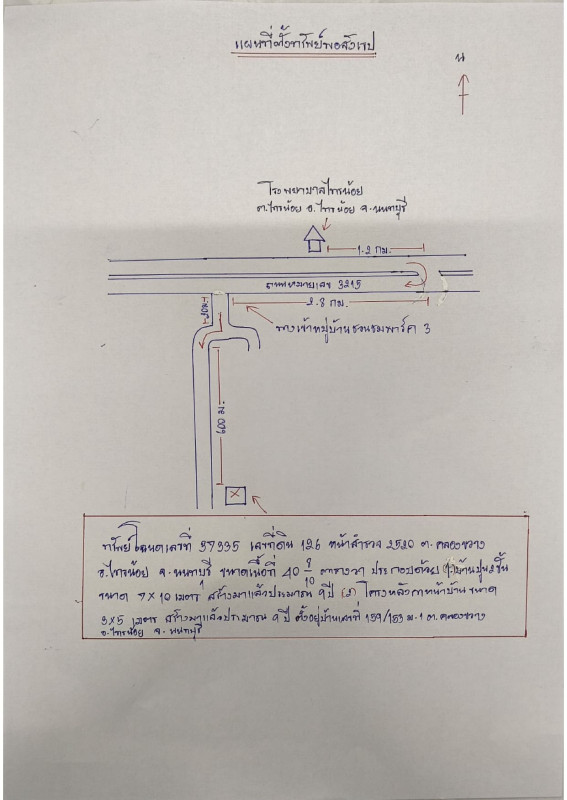 แผนที่ตั้งทรัพย์พอสังเขป
น
โรงพยาบาลไทรน้อย
ต.ไทรน้อย อ.ไทรน้อย จ.นนทบุรี
1.2 กม.
ถนนหมายเลข 3215
2.8 กม.
20 ม.
ทางเข้าหมู่บ้านชวนชมพาร์ค 3
600 ม.
ทรัพย์โฉนดเลขที่ 57335 เลขที่ดิน 126 หน้าสำรวจ 2520 ต.คลองขวาง
อ.ไทรน้อย จ.นนทบุรี ขนาดเนื้อที่ 40 9/10 ตารางวา ประกอบด้วย (1) บ้านปูน 2 ชั้น
ขนาด 7×10 เมตร สร้างมาแล้วประมาณ 9 ปี (2) โครงหลังคาหน้าบ้าน ขนาด
3×5 เมตร สร้างมาแล้วประมาณ 9 ปี ตั้งอยู่บ้านเลขที่ 159/153 ม.1 ต.คลองขวาง
อ.ไทรน้อย จ.นนทบุรี